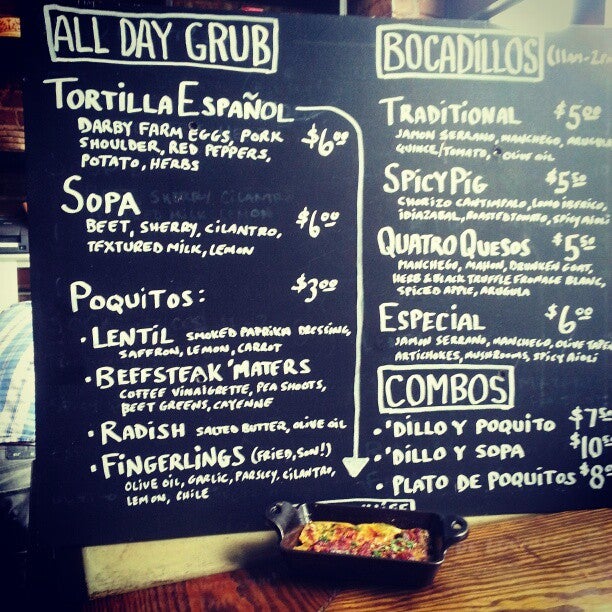 ALL DAY GRUB
TORTILLA ESPAÑOL
DARBY FARM EGGS, PORK
SHOULDER, RED PEPPERS,
POTATO, HERBS
$6.00
SOPA
BEET, SHERRY, CILANTRO,
TEXTURED MILK, LEMON
$6.00
POQUITOS: $3.00
• LENTIL SMOKED PAPRIKA DRESSING,
SAFFRON, LEMON, CARROT
• BEEFSTEAK 'MATERS
COFFEE VINAIGRETTE, PEA SHOOTS,
BEET GREENS, CAYENNE
• RADISH SALTED BUTTER, OLIVE OIL
• FINGERLINGS (FRIED, SON!)
OLIVE OIL, GARLIC, PARSLEY, CILANTRO,
LEMON, CHILE
BOCADILLOS
TRADITIONAL $5.00
JAMON SERRANO, MANCHEGO, ARUGULA
QUINCE/TOMATO, OLIVE OIL
SPICY PIG $5.50
CHORIZO CANTIMPALO, LOMO IBERICO,
IDIAZABAL, ROASTED TOMATO, SPICY AIOLI
QUATRO QUESOS $5.50
MANCHEGO, MAHON, DRUNKEN GOAT,
HERB & BLACK TRUFFLE FROMAGE BLANC,
SPICED APPLE, ARUGULA
ESPECIAL $6.00
JAMON SERRANO, MANCHEGO, OLIVE
ARTICHOKES, MUSHROOMS, SPICY AIOLI
COMBOS
• 'DILLO Y POQUITO
• 'DILLO Y SOPA
• PLATO DE POQUITOS